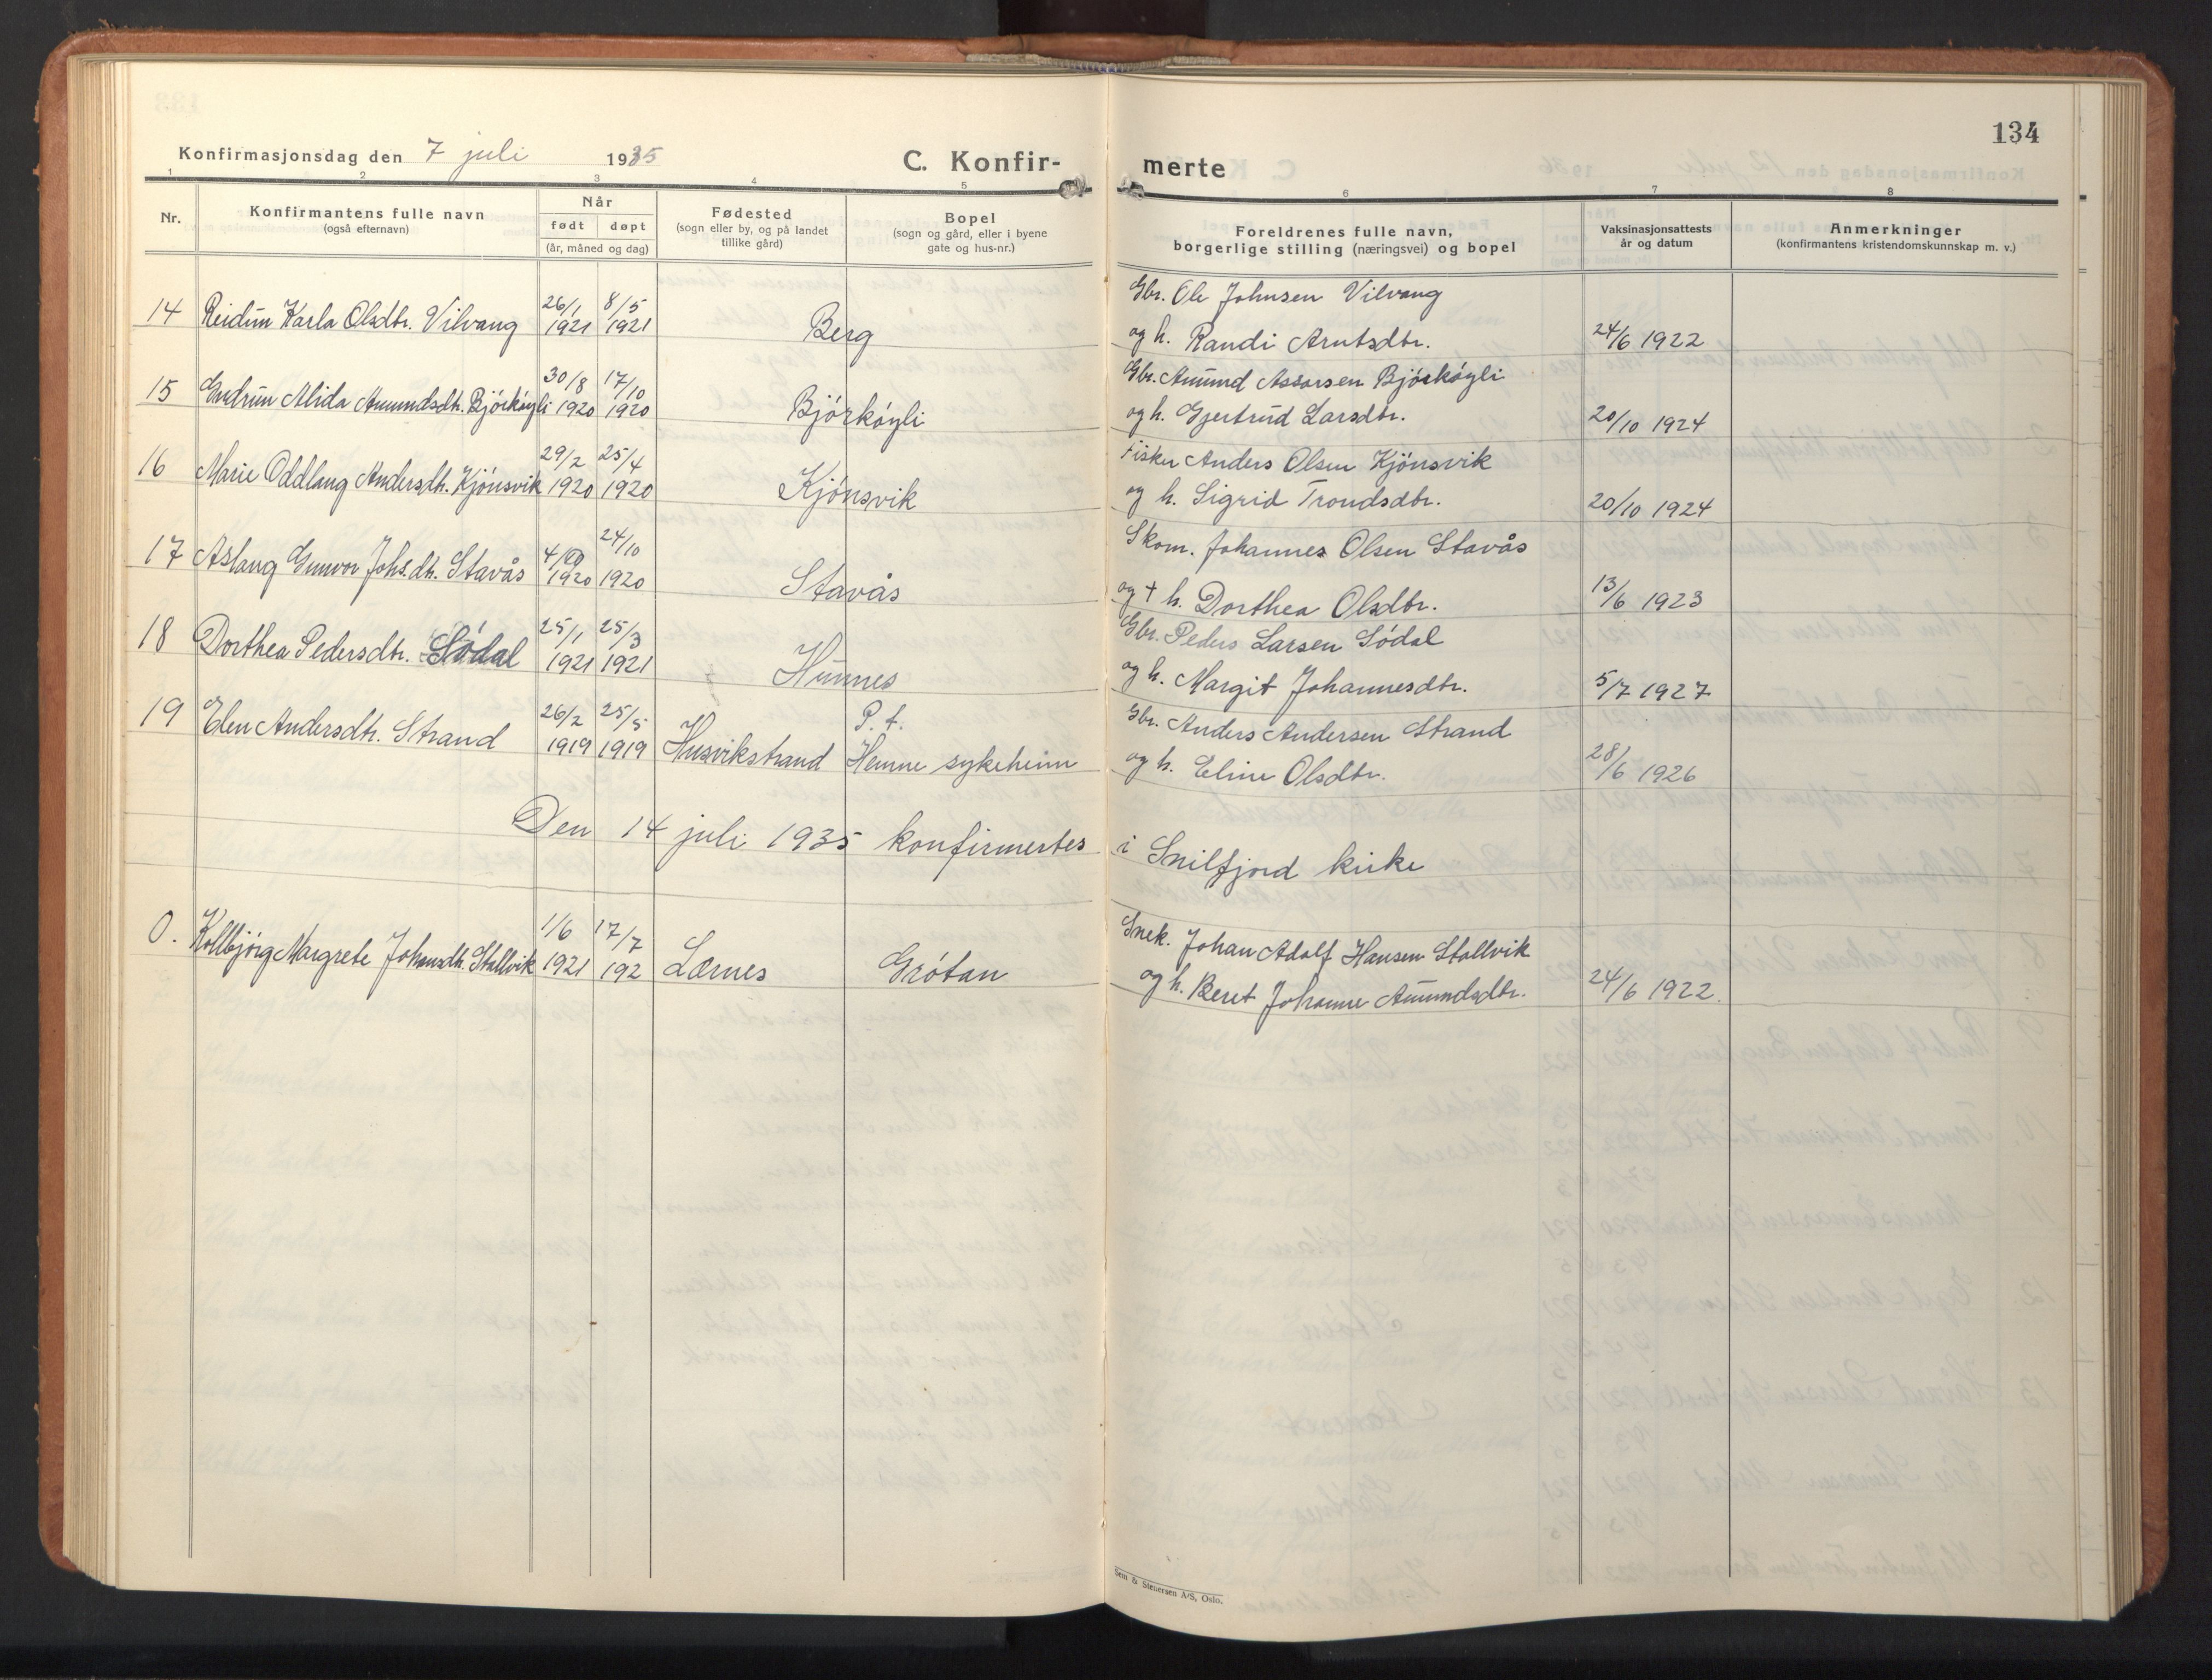 134
Konfirmasjonsdag den 7 juli 1935 C. Konfir- merte
1 2 3 4 5 6 7 8
Nr. Konfirmantens fulle navn (også efternavn) Når født døpt (år, måned og dag) Fødested (sogn eller by, og på landet tillike gård) Bopel (sogn og gård, eller i byene gate og hus-nr.) Foreldrenes fulle navn, borgerlige stilling (næringsvei) og bopel Vaksinasjonsattests år og datum Anmerkninger (konfirmantens kristendomskunnskap m. v.)
14 Reidun Karla Olsdtr. Vilvang 26/1 1921 8/5 1921 Berg Gbr. Ole Johnsen Vilvang
og h. Randi Arntsdtr. 24/6 1922
15 Gudrun Alida Amundsdtr. Bjórkóyli 30/8 1920 17/10 1920 Bjórkóyli Gbr. Amund Assarsen Bjórkóyli
og h. Gjertrud Larsdtr. 20/10 1924
16 Marie Oddlaug Andersdtr. Kjónsvik 29/2 1920 25/4 1920 Kjónsvik Fisker Anders Olsen Kjónsvik
og h. Sigrid Trondsdtr. 20/10 1924
17 Aslaug Gunvor Johs.dtr. Stavås 4/9 1920 24/10 1920 Stavås Skom. Johannes Olsen Stavås
og + h. Dorthea Olsdtr. 13/6 1923
18 Dorthea Pedersdtr. Sódal 25/1 1921 25/3 1921 Hunnes Gbr. Peder Larsen Sódal
og h. Margit Johannesdtr. 5/7 1927
19 Elen Andersdtr. Strand 26/2 1919 25/5 1919 Husvikstrand P. t. Hemne sykeheim Gbr. Anders Andersen Strand
og h. Eline Olsdtr. 28/6 1926
Den 14 juli 1935 konfirmertes i Snilfjord kirke
0. Kollbjórg Margrete Johansdtr. Stallvik 1/6 1921 17/7 192 Lernes Grótan Snek. Johan Adolf Hansen Stallvik
og h. Beret Johanne Amundsdtr. 24/6 1922.
Sem & Stenersen A/S, Oslo.